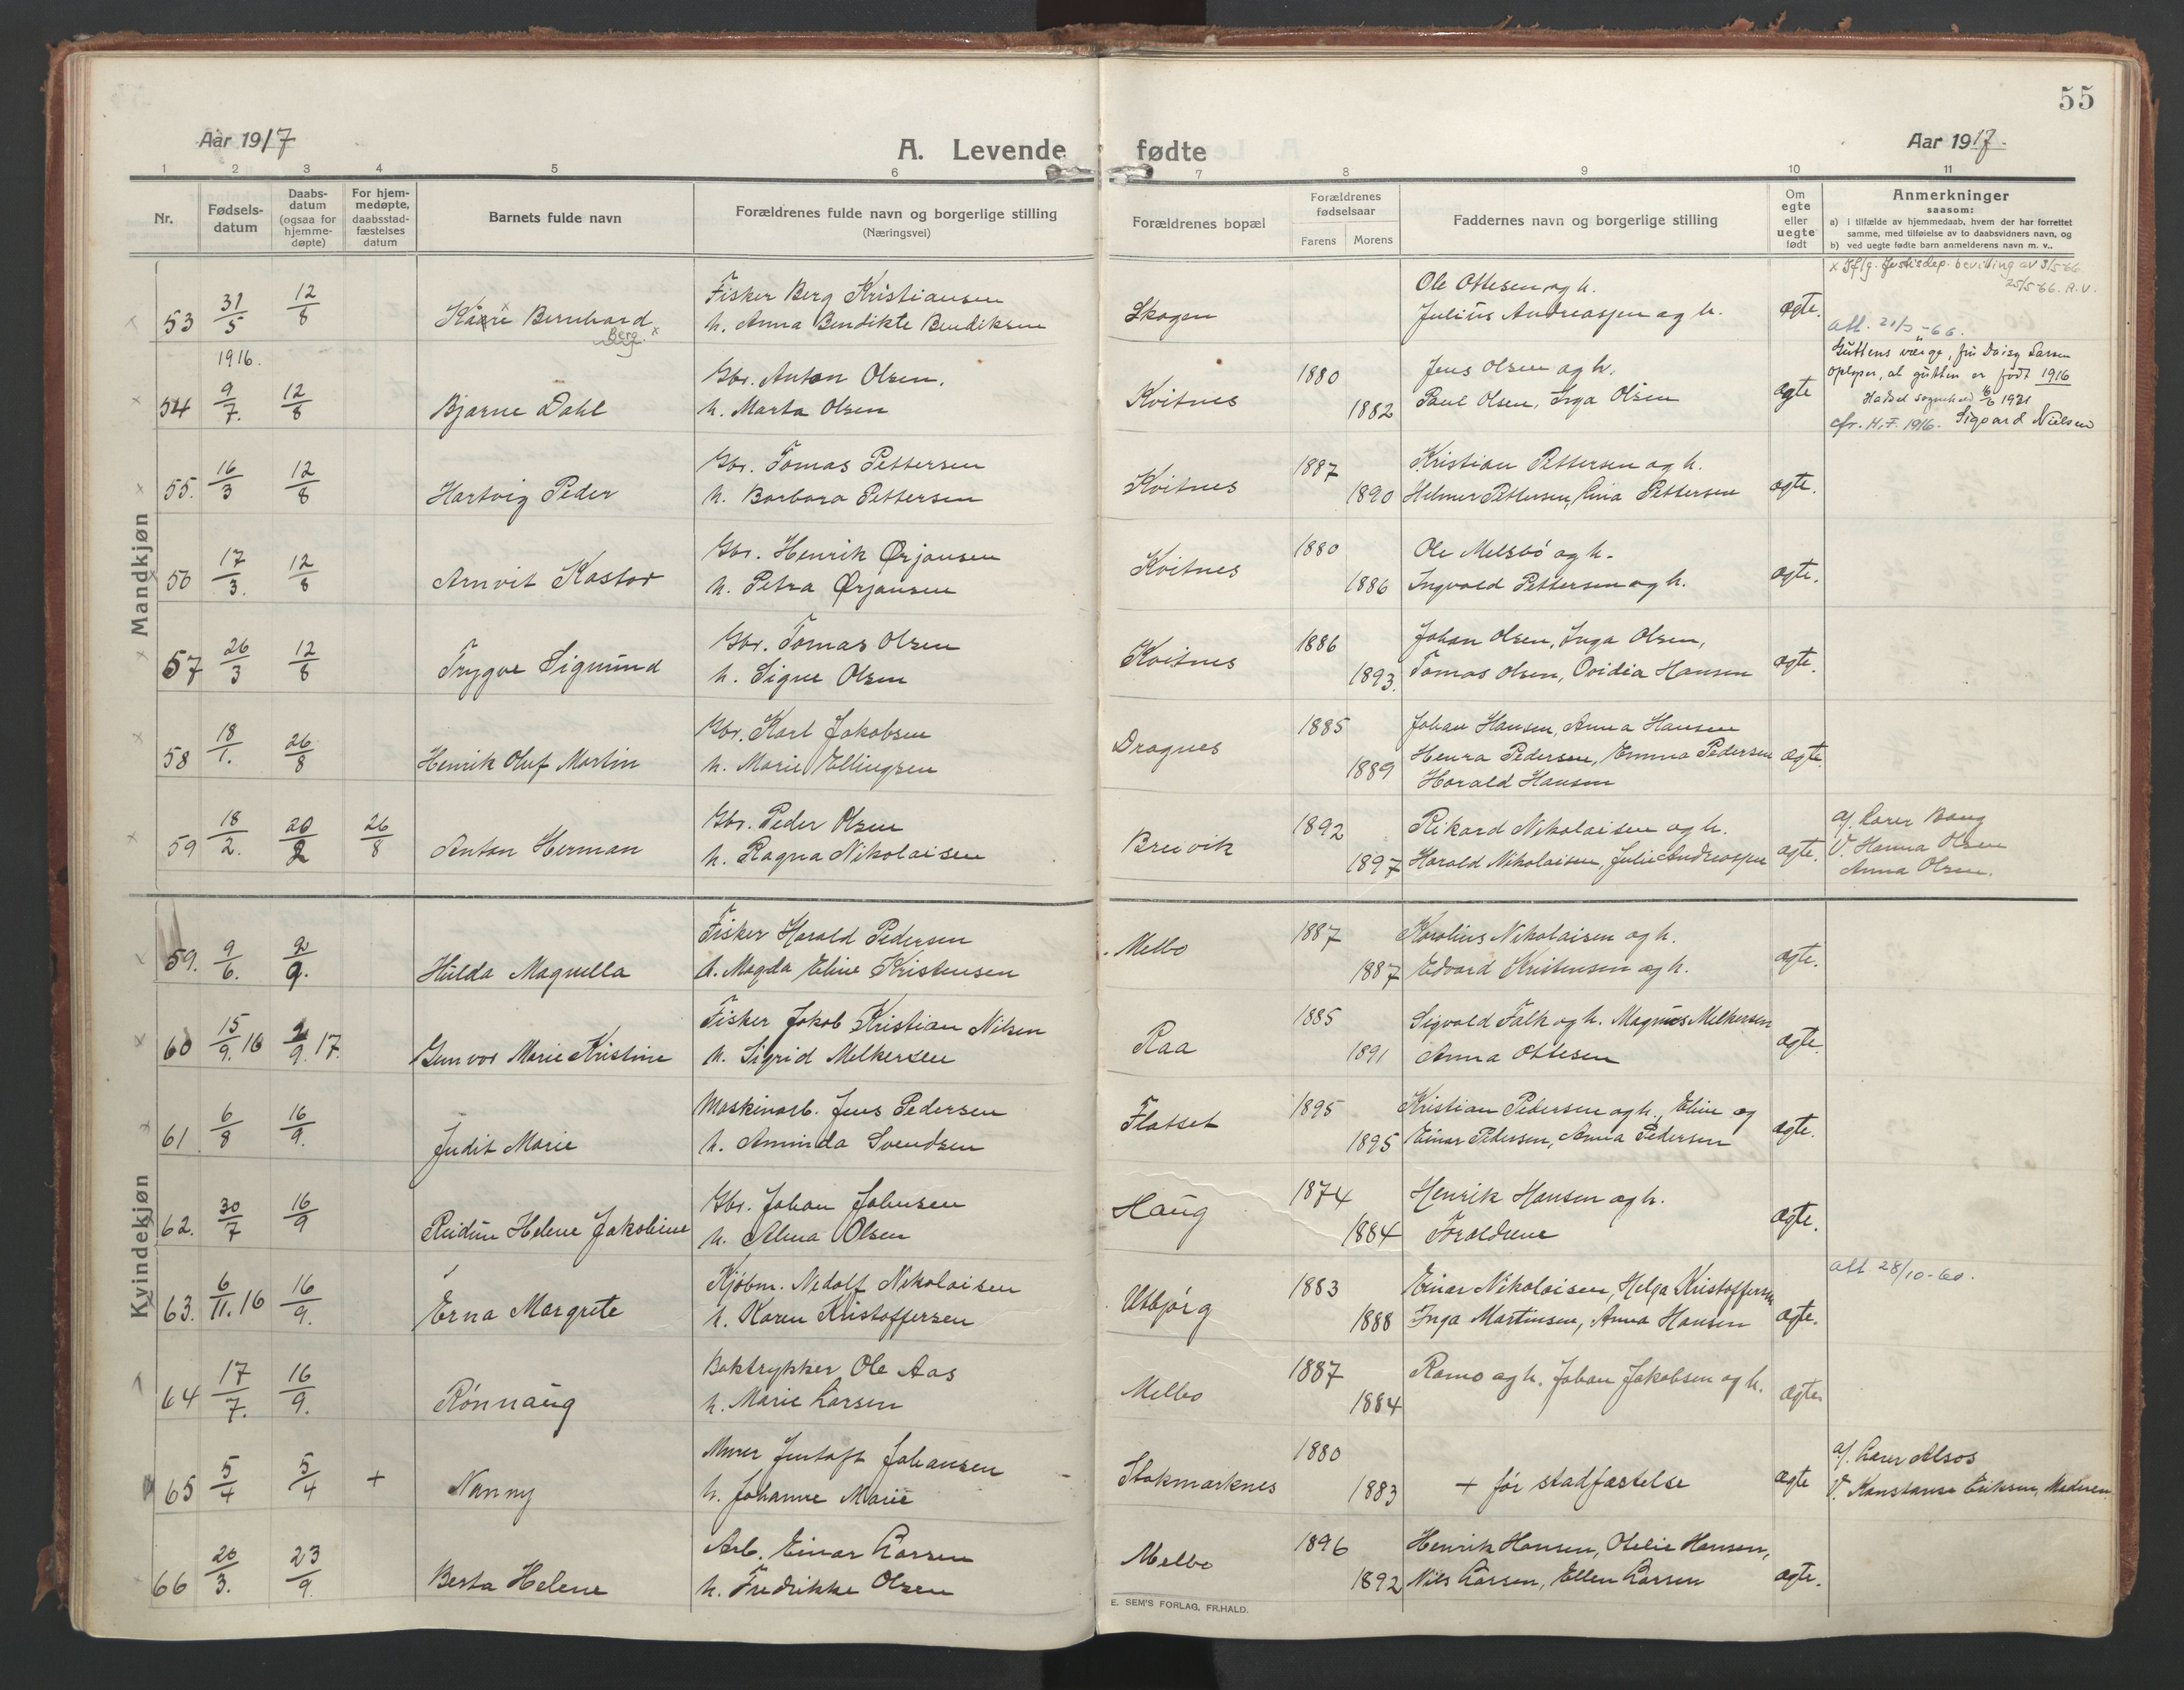 55
Aar 1917
A. Levende fødte
Aar 1917
1 2 3 4 5 6 7 8 9 10 11
Nr.
Fødsels-
datum
Daabs-
datum
(ogsaa for
hjemme-
døpte)
For hjem-
medøpte,
daabsstad-
fæstelses
datum
Barnets fulde navn
Forældrenes fulde navn og borgerlige stilling
(Næringsvei)
Forældrenes bopæl
Forældrenes
fødselsaar
Farens Morens
Faddernes navn og borgerlige stilling
Om
egte
eller
uegte
født
Anmerkninger
saasom:
a) i tilfælde av hjemmedaab, hvem der har forrettet
samme, med tilføielse av to daabsvidners navn, og
b) ved uegte fødte barn anmelderens navn m. v..
Mandkjøn
53 31/5 12/8 Kaare Bernhard Berg Fisker Berg Kristiansen
h. Anna Bendikte Bendiksen
Skogen
Ole Ottesen og h.
Julius Andreassen og h.
ægte.
x Iflg. Justisdep. bevilling av 3/5-66
25/5-66. A.V.
att. 21/5-66.
1916.
54 9/7. 12/8 Bjarne Dahl Gbr. Anton Olsen.
h. Marta Olsen
Kvitnes 1880 1882
Jens Olsen og h.
Paul Olsen, Inga Olsen
ægte
Guttens værge, fru Daisy Larsen
oplyser, at gutten er født 1916
Hadsel sognekald 6/6 1921
Sigvard Nielsen
cfr. H.F. 1916.
55. 16/3 12/8 Hartvig Peder Gbr. Tomas Pettersen
h. Barbara Pettersen
Kvitnes 1887 1890
Kristian Pettersen og h.
Helmer Pettersen, Lina Pettersen
ægte.
56 17/3. 12/8 Arnvit Kastor Gbr. Henrik Ørjansen
h. Petra Ørjansen
Kvitnes 1880 1886
Ole Melsbó og h.
Ingvald Pettersen og h.
ægte.
57 26/3 12/8 Trygve Sigmund Gbr. Tomas Olsen
h. Signe Olsen
Kvitnes 1886 1893.
Johan Olsen, Inga Olsen,
Tomas Olsen, Ovidia Hansen
ægte.
58 18/1. 26/8 Henrik Oluf Martin Gbr. Karl Jakobsen
h. Marie Ellingsen
Dragnes 1885 1889
Johan Hansen, Anna Hansen
Henra Pedersen, Emma Pedersen
Harald Hansen
ægte.
59 18/2. 20/2 26/8 Anton Herman Gbr. Peder Olsen
h. Ragna Nikolaisen
Breivik 1892 1897
Rikard Nikolaisen og h.
Harald Nikolaisen, Julie Andreassen
ægte.
a/ Lærer Bang
V. Hanna Olsen
Anna Olsen.
Kvindekjøn
59. 9/6. 2/9. Hulda Magnella Fisker Harald Pedersen
h. Magda Eline Kristensen
Melbo 1887 1887
Karolius Nikolaisen og h.
Edvard Kristensen og h.
ægte.
60 15/9. 16 2/9. 17. Gunvor Marie Kristine Fisker Jakob Kristian Nilsen
h. Sigrid Melkersen
Raa 1885 1891
Sigvald Falk og h. Magnus Melkersen
Anna Ottesen
ægte.
61 6/8 16/9. Judit Marie Maskinarb. Jens Pedersen
h. Aminda Svendsen
Flatset 1895 1895
Kristian Pedersen og h., Eline og
Einar Pedersen, Anna Pedersen
ægte.
62. 30/7 16/9 Reidun Helene Jakobine Gbr. Johan Johnsen
h. Alma Olsen
Haug 1874 1884
Henrik Hansen og h.
Foraldrene
ægte.
63. 6/11. 16 16/9. Erna Margrete Kjøbm. Nedolf Nikolaisen
h. Karen Kristoffersen
Utbjórg 1883 1888
Einar Nikolaisen, Helga Kristoffersen
Inga Martinsen, Anna Hansen
ægte.
att. 28/10-60.
64 17/7. 16/9. Rónnaug Boktrykker Ole Aas
h. Marie Larsen
Melbo 1887 1884
Ramo og h. Johan Jakobsen og h.
ægte.
65 5/4 5/4 + Nanny Murer Jentoft Johansen
h. Johanne Marie
Stokmarknes 1880 1883
+ fór stadfæstelse
ægte
a/ Lærer Alsos
V. Konstanse Eriksen, Moderen
66 20/3. 23/9. Berta Helene Arb. Einar Larsen
h. Fredrikke Olsen
Melbo 1896 1892
Henrik Hansen, Otelie Hansen,
Nils Larsen, Ellen Larsen
ægte.
E. SEM'S FORLAG, FR.HALD.